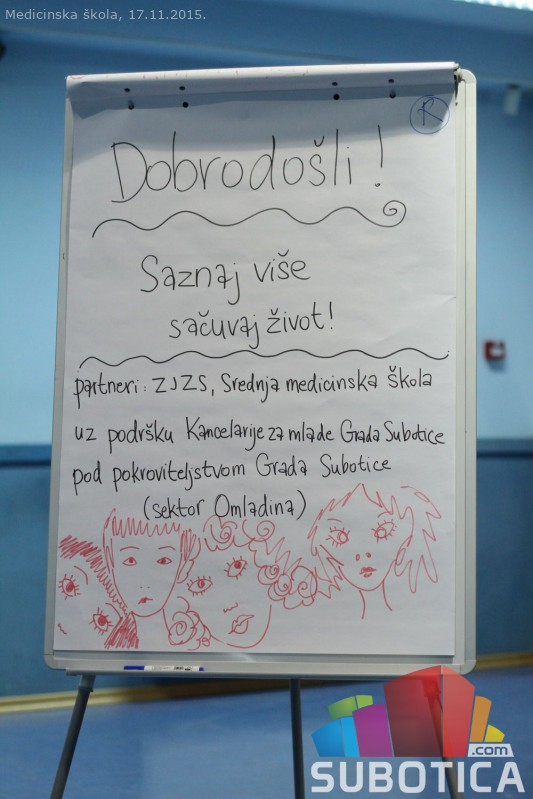 Medicinska škola, 17.11.2015.
R
Dobrodošli!
Saznaj više
sačuvaj život!
partneri: ZJZS, Srednja medicinska škola
uz podršku Kancelarije za mlade Grada Subotice
pod pokroviteljstvom Grada Subotice
(sektor Omladina)
.com
SUBOTICA